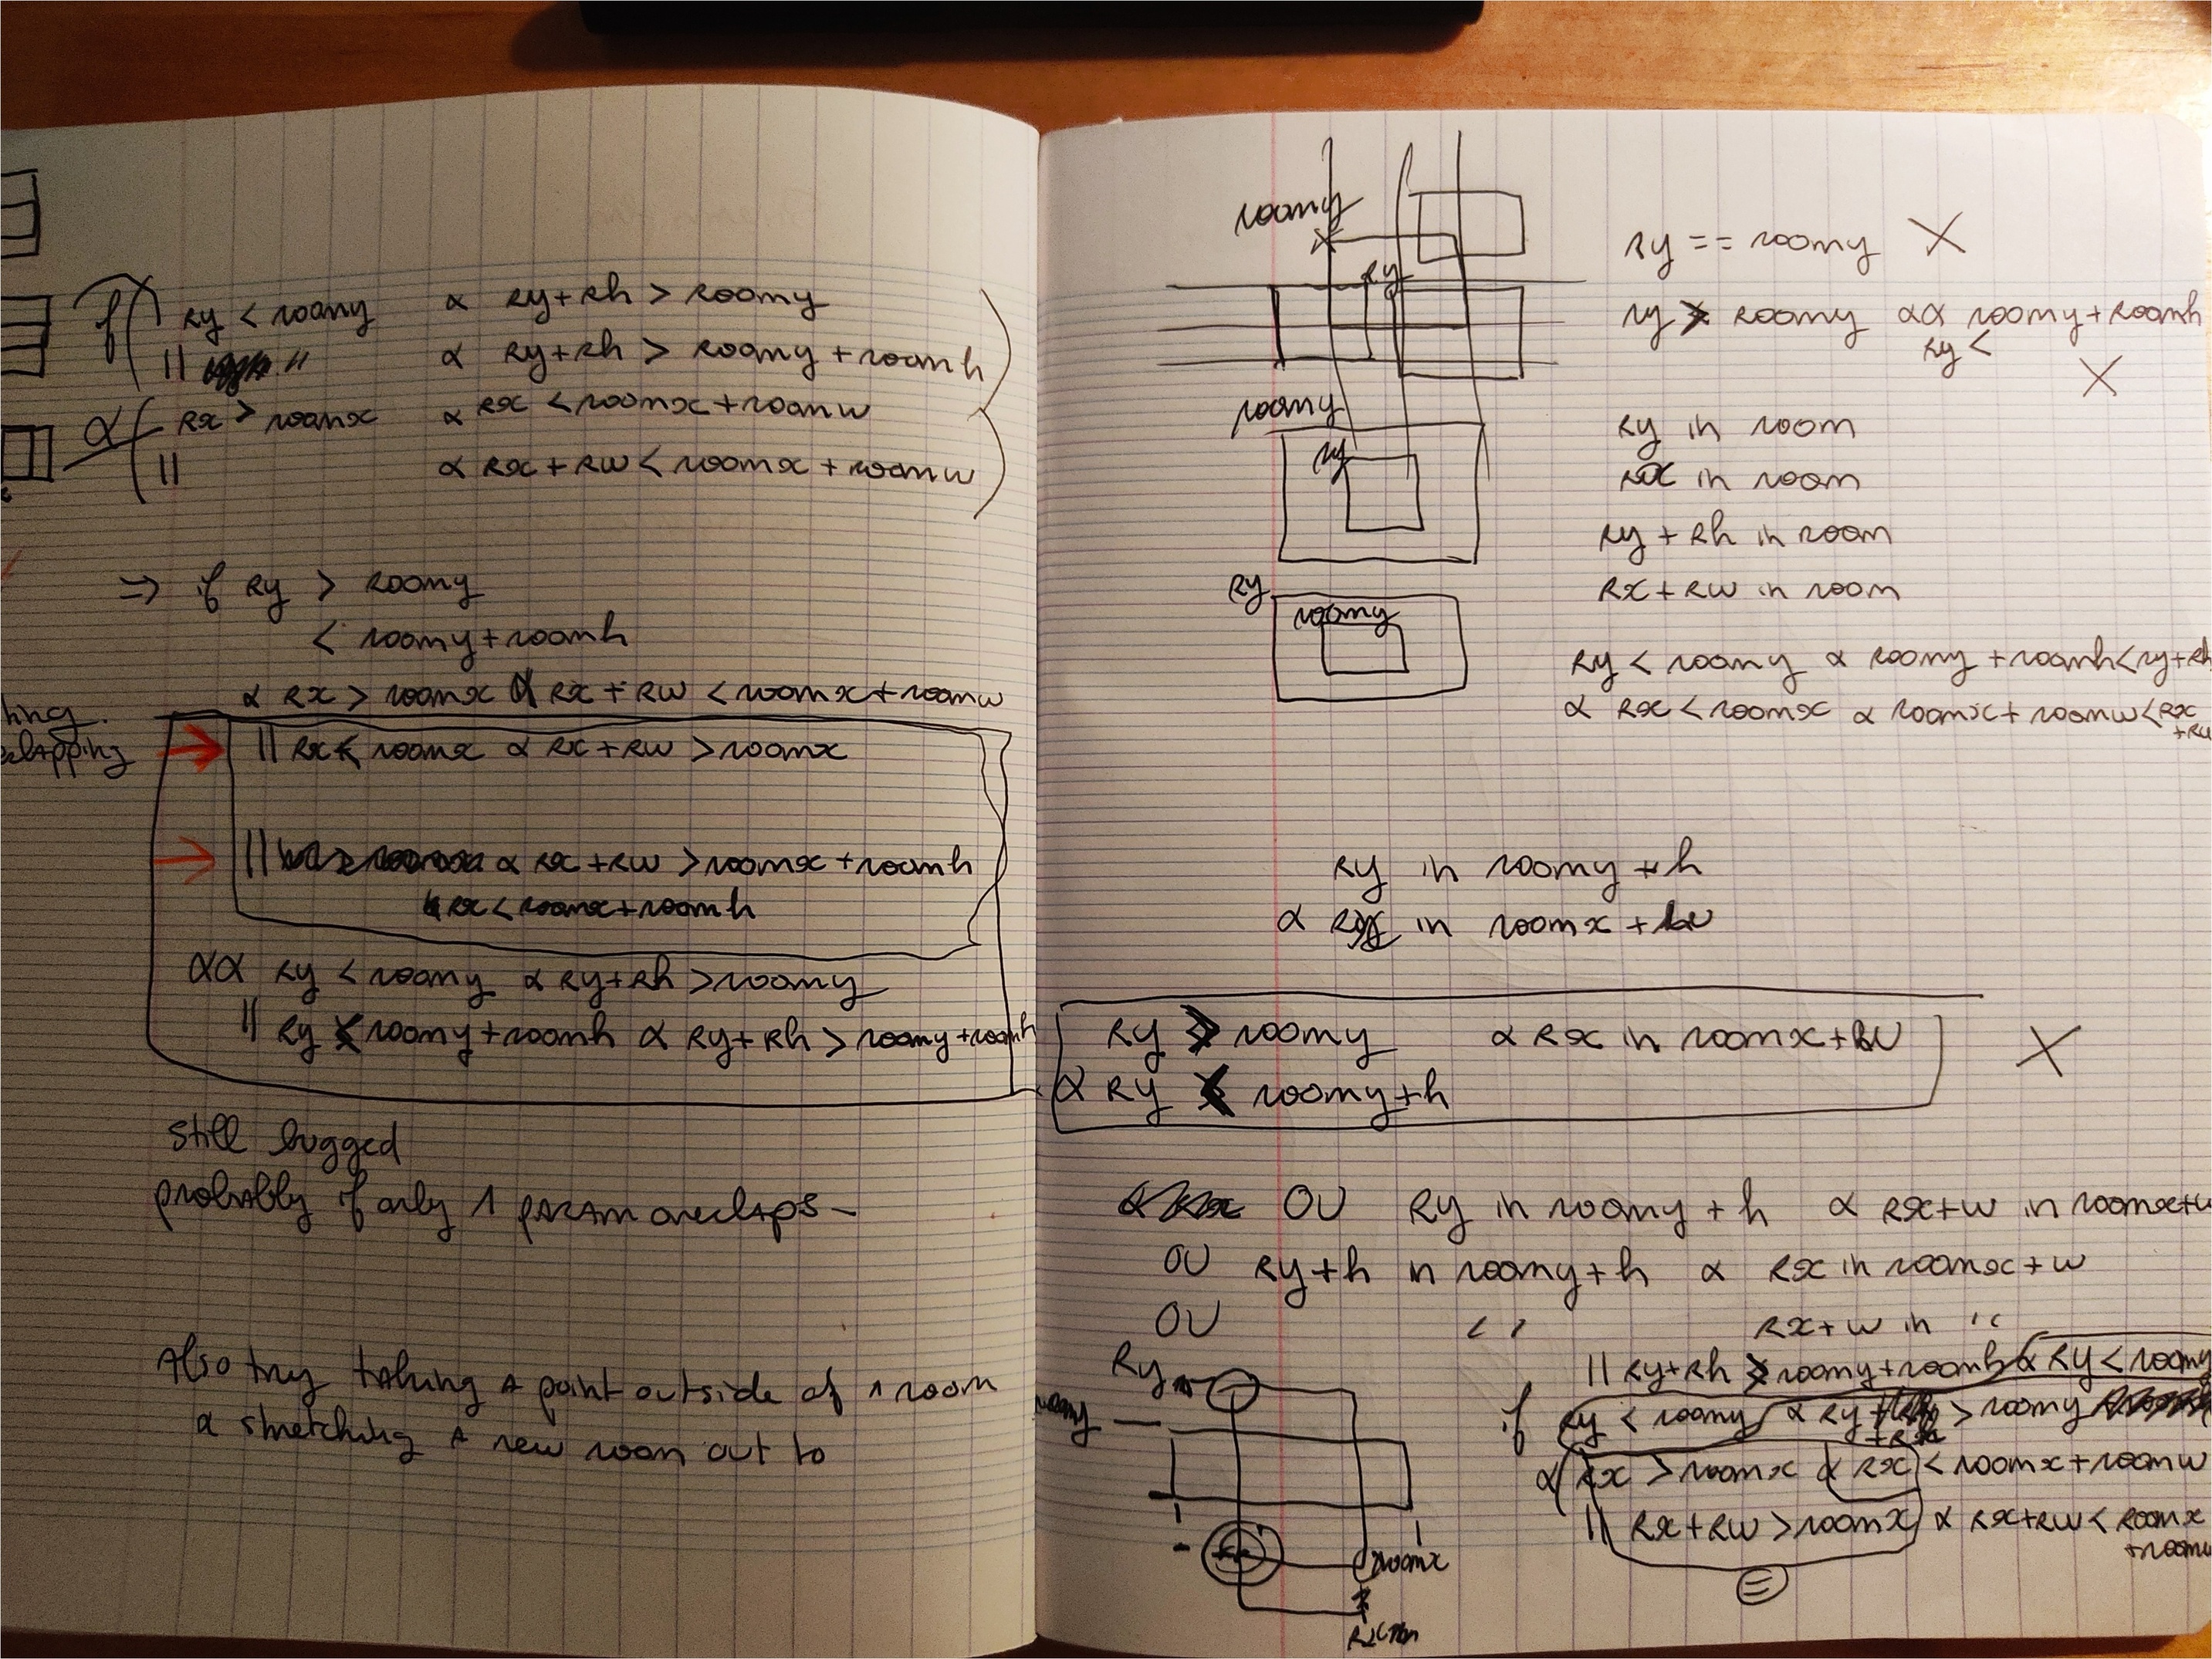 if ( Ry < roomy & Ry+Rh > roomy
|| " & Ry+Rh > roomy + roomh
& ( Rx > roomx & Rx < roomx+roomw
|| & Rx + Rw < roomx + roomw
=> if Ry > roomy
< roomy+roomh
& Rx > roomx & Rx + Rw < roomx+roomw
|| Rx < roomx & Rx+Rw > roomx
|| & Rx+Rw > roomx+roomh
& Rx < roomx+roomh
&& Ry < roomy & Ry+Rh > roomy
|| Ry < roomy+roomh & Ry+Rh > roomy+roomh
still bugged
probably if only 1 param overlaps -
Also try taking a point outside of 1 room
& stretching a new room out to
roomy
Ry
roomy
ry
Ry
roomy
ry == roomy X
ry > roomy && roomy+roomh
ry <
X
Ry in room
Rx in room
Ry + Rh in room
Rx + Rw in room
Ry < roomy & roomy + roomh < ry+Rh
& Rx < roomx & roomx + roomw < Rx
+Rw
Ry in roomy + h
& Rx in roomx + w
Ry > roomy & Rx in roomx+w X
& Ry < roomy+h
OU Ry in roomy + h & Rx+w in roomx+w
OU Ry+h in roomy+h & Rx in roomx+w
OU " Rx+w in "
|| Ry+Rh > roomy+roomh & Ry < roomy
if Ry < roomy & Ry +Rh > roomy
& ( Rx > roomx & Rx < roomx+roomw
|| Rx+Rw > roomx & Rx+Rw < roomx
+roomw
=
Ry
roomy
roomx